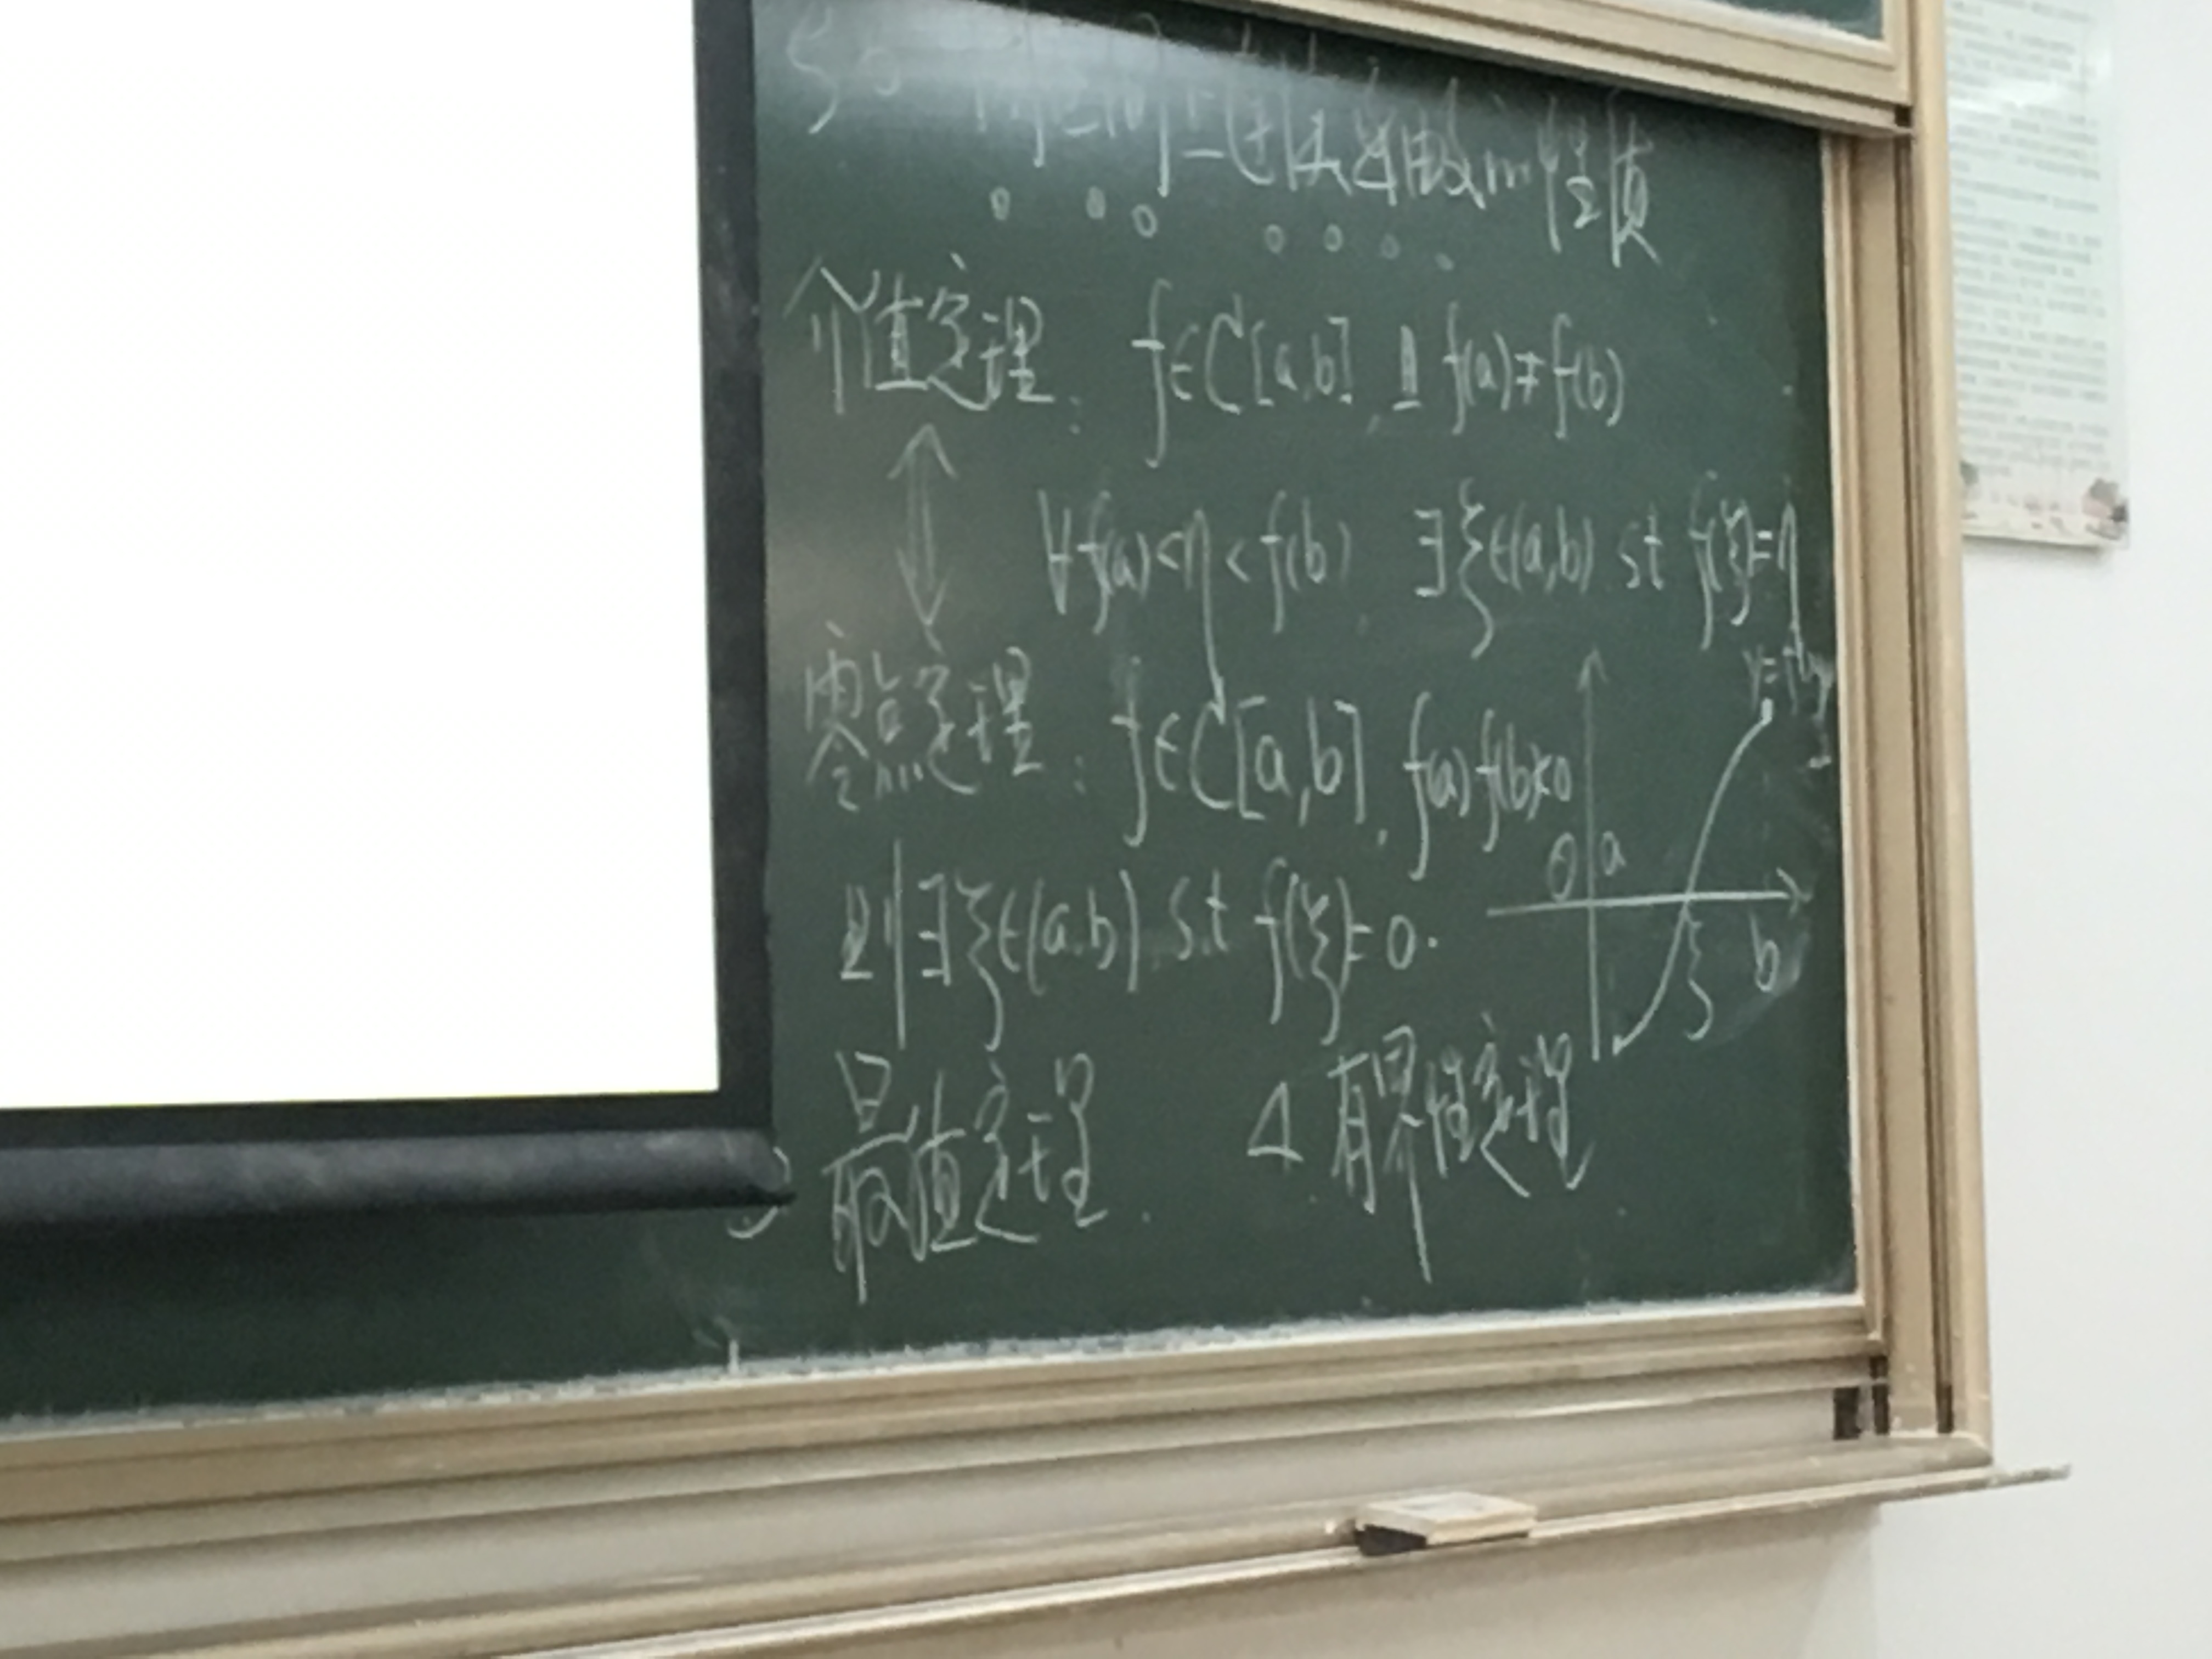 闭区间上连续函数的性质
介值定理: f∈C[a,b], 且 f(a)≠f(b)
∀f(a)<η<f(b) ∃ξ∈(a,b) st f(ξ)=η
零点定理: f∈C[a,b], f(a)f(b)<0
y=f(x)
0 a
则∃ξ∈(a,b) s.t f(ξ)=0.
ξ b
最值定理. Δ 有界性定理